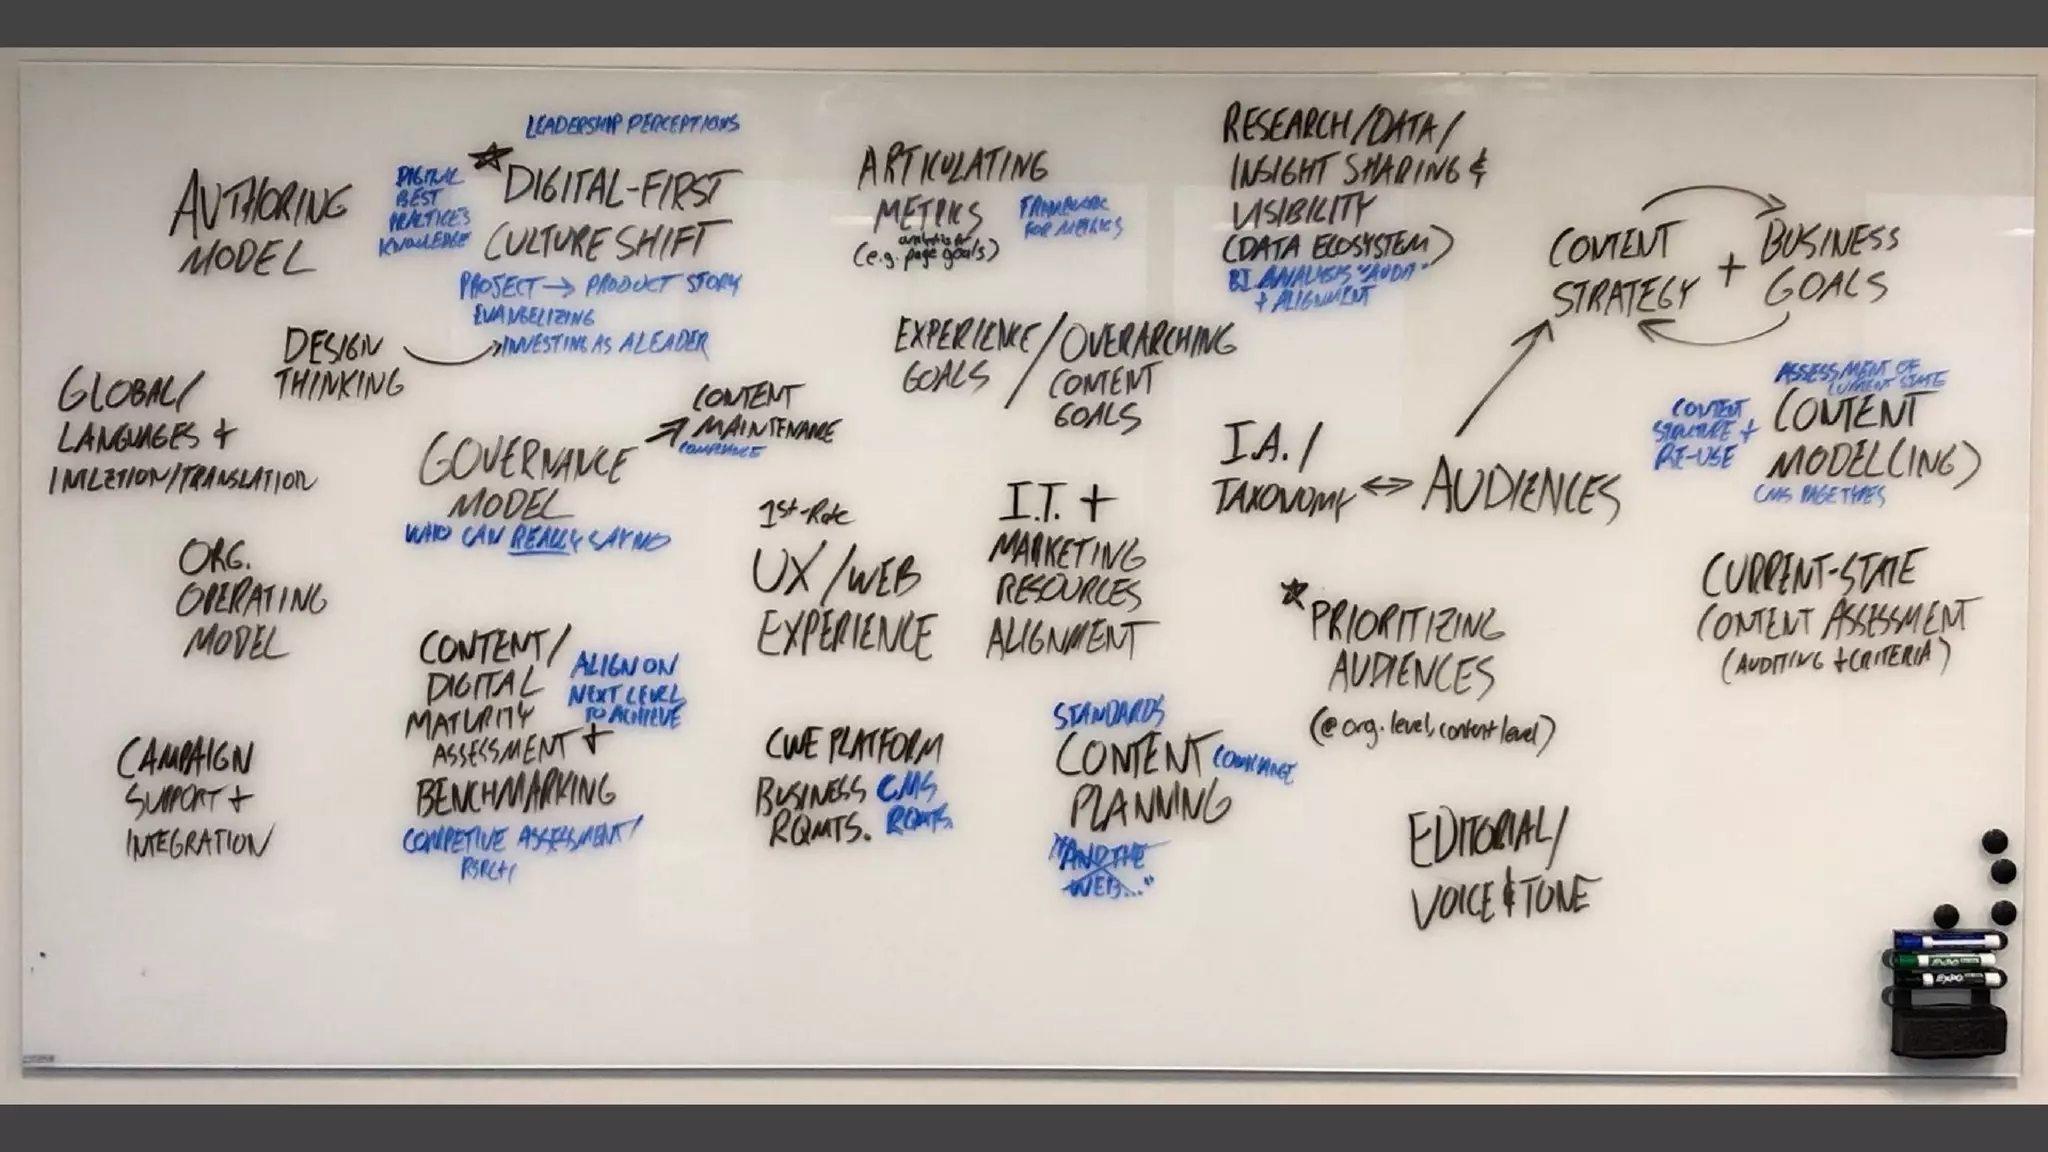 AUTHORING
MODEL
DIGITAL
BEST
PRACTICES
KNOWLEDGE
LEADERSHIP PERCEPTIONS
DIGITAL-FIRST
CULTURE SHIFT
PROJECT → PRODUCT STORY
EVANGELIZING
INVESTING AS A LEADER
DESIGN
THINKING
GLOBAL/
LANGUAGES +
INTLZTION/TRANSLATION
GOVERNANCE
MODEL
WHO CAN REALLY SAY NO
CONTENT
MAINTENANCE
COMPLIANCE
ORG.
OPERATING
MODEL
CONTENT/
DIGITAL
MATURITY
ASSESSMENT +
BENCHMARKING
ALIGN ON
NEXT LEVEL
TO ACHIEVE
COMPETIVE ASSESSMENT/
RSRCH
CAMPAIGN
SUPPORT +
INTEGRATION
ARTICULATING
METRICS
(e.g. page goals)
FRAMEWORK
FOR METRICS
EXPERIENCE/OVERARCHING
GOALS CONTENT
GOALS
1st-Rate
UX/WEB
EXPERIENCE
I.T. +
MARKETING
RESOURCES
ALIGNMENT
CWE PLATFORM
BUSINESS CMS
RQMTS. RQMTS.
STANDARDS
CONTENT COMPLIANCE
PLANNING
"AND THE
WEB..."
RESEARCH/DATA/
INSIGHT SHARING &
VISIBILITY
(DATA ECOSYSTEM)
BI ANALYSIS "AUDIT"
+ ALIGNMENT
CONTENT
STRATEGY
+
BUSINESS
GOALS
I.A./
TAXONOMY ↔ AUDIENCES
ASSESSMENT OF
CURRENT STATE
CONTENT
STRUCTURE +
RE-USE
CONTENT
MODEL(ING)
CMS PAGE TYPES
PRIORITIZING
AUDIENCES
(@org. level, content level)
CURRENT-STATE
CONTENT ASSESSMENT
(AUDITING + CRITERIA)
EDITORIAL/
VOICE & TONE
EXPO
EXPO